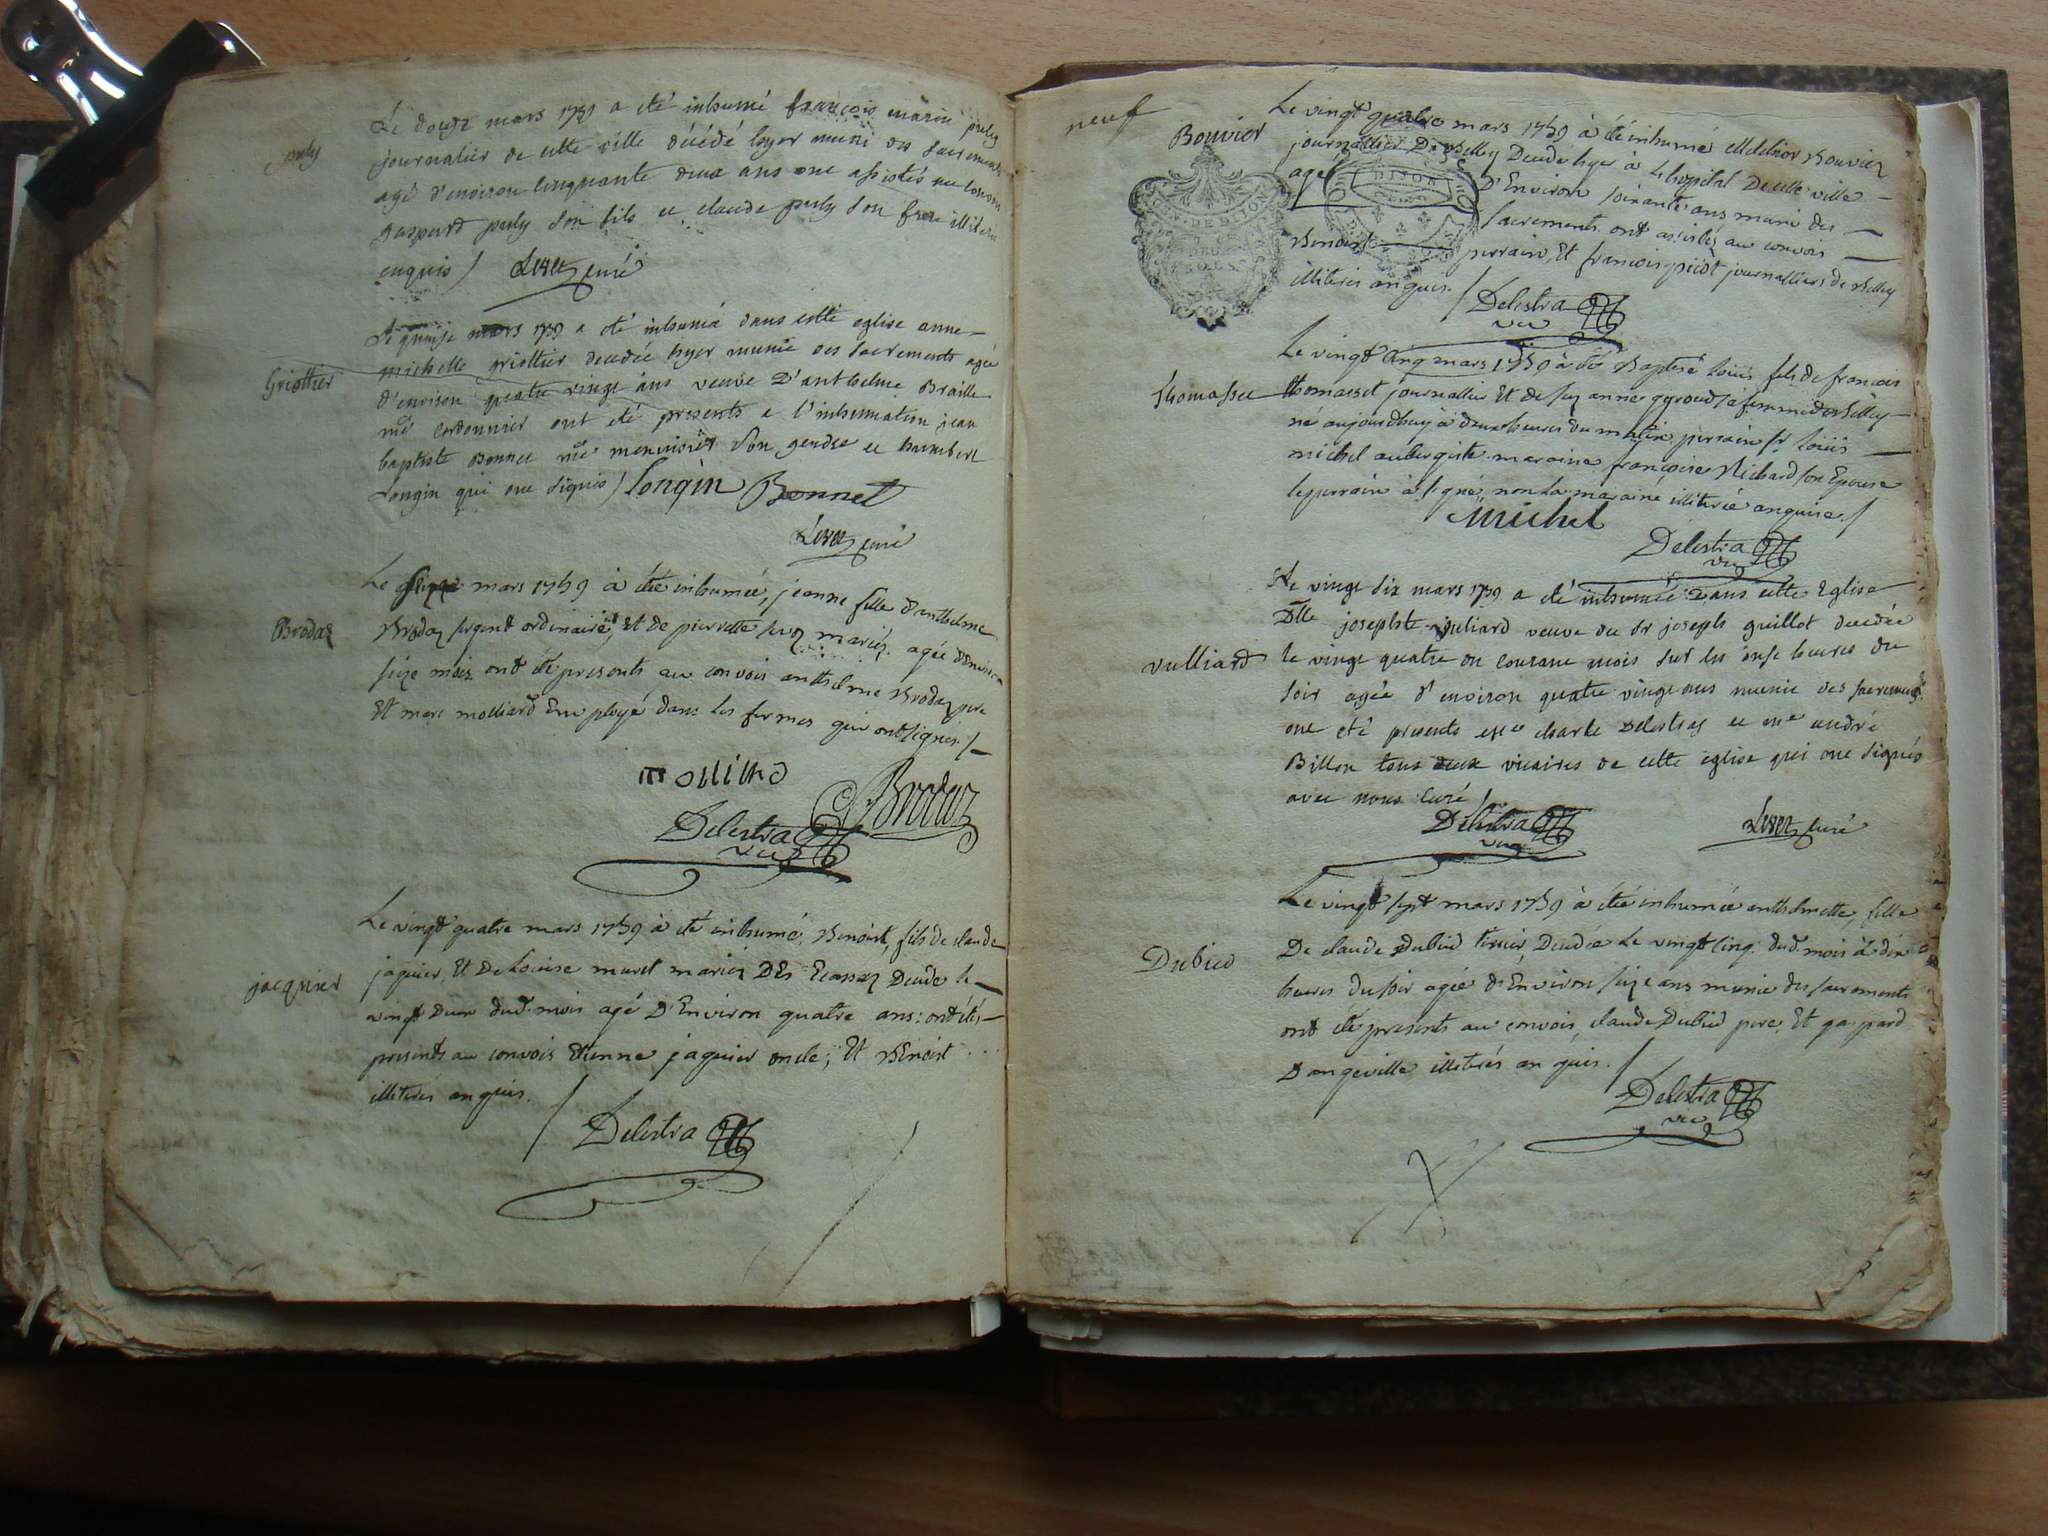 puly
Le douze mars 1759 a été inhumé françois marin puly
journalier de cette ville décédé hyer muni des sacrements
agé d'environ cinquante deux ans ont assistés au convoy
gaspard puly son fils et claude puly son frere illiterés
enquis / curé
Griottier
Le quinze mars 1759 a été inhumée dans cette eglise anne
michelle griottier decedée hyer munie des sacrements agée
d'environ quatre vingt ans veuve d'anthelme Braille
me cordonnier ont été presents a l'inhumation jean
baptiste Bonnet me menuisier son gendre et humbert
Longin qui ont signés / Longin Bonnet
curé
Brodaz
Le seize mars 1759 à été inhumée, jeanne fille d'anthelme
Brodaz sergent ordinaire, et de pierrette mariez agée d'environ
seize mois, ont été presents au convois anthelme Brodaz pere
Et marc molliard Employé dans les fermes qui ont signés /
Brodaz
Delestra
vic
jacquier
Le vingt quatre mars 1759 à été inhumé, Benoist, fils de claude
jaquier, Et De Louise muret mariez DEs Ecassaz Decede le
vingt Deux dud. mois agé D'Environ quatre ans: ont étés
presents au convois Etienne jaquier oncle, Et BEnoist
illiterés enquis. /
Delestra
neuf
Bouvier
Le vingt quatre mars 1759 à été inhumé Melchior Bouvier
journallier De Belley Decedé hyer à L'hopital De cette ville
agé D'Environ soixante ans muni des
sacrements ont assistés au convois
Benoist perrain, Et francois picot journalliers de Belley
illiterés enquis. / Delestra
vic
Thomasset
Le vingt Cinq mars 1759 à été Baptisé Loüis fils de francois
thomasset journallier Et de suzanne gyroud sa femme de Belley
né aujourdhuy à deux heures du matin, perrain sr. Loüis
michel aubergiste maraine francoise Richard son Epouse
le perrain à signé, non La maraine illiterée enquise. /
Michel
Delestra
vic
vulliard
Le vingt six mars 1759 a été inhumée dans cette Eglise
Dlle josephte vuliard veuve du sr joseph guillot decedée
le vingt quatre du courant mois sur les onse heures du
soir agée d'environ quatre vingt ans munie des sacrements
ont été presents charle Delestraz et me andré
Billon tous deux vicaires de cette eglise qui ont signés
avec nous curé /
Delestra
vic
curé
Dubied
Le vingt sept mars 1759 à été inhumée anthelmette, fille
De claude Dubied tissier, Decedée Le vingt Cinq dud. mois à dix
heures du soir agée d'Environ seize ans munie des sacrements
ont été presents au convois, claude Dubied pere, Et gaspard
Dangeville illiterés enquis. /
Delestra
vic